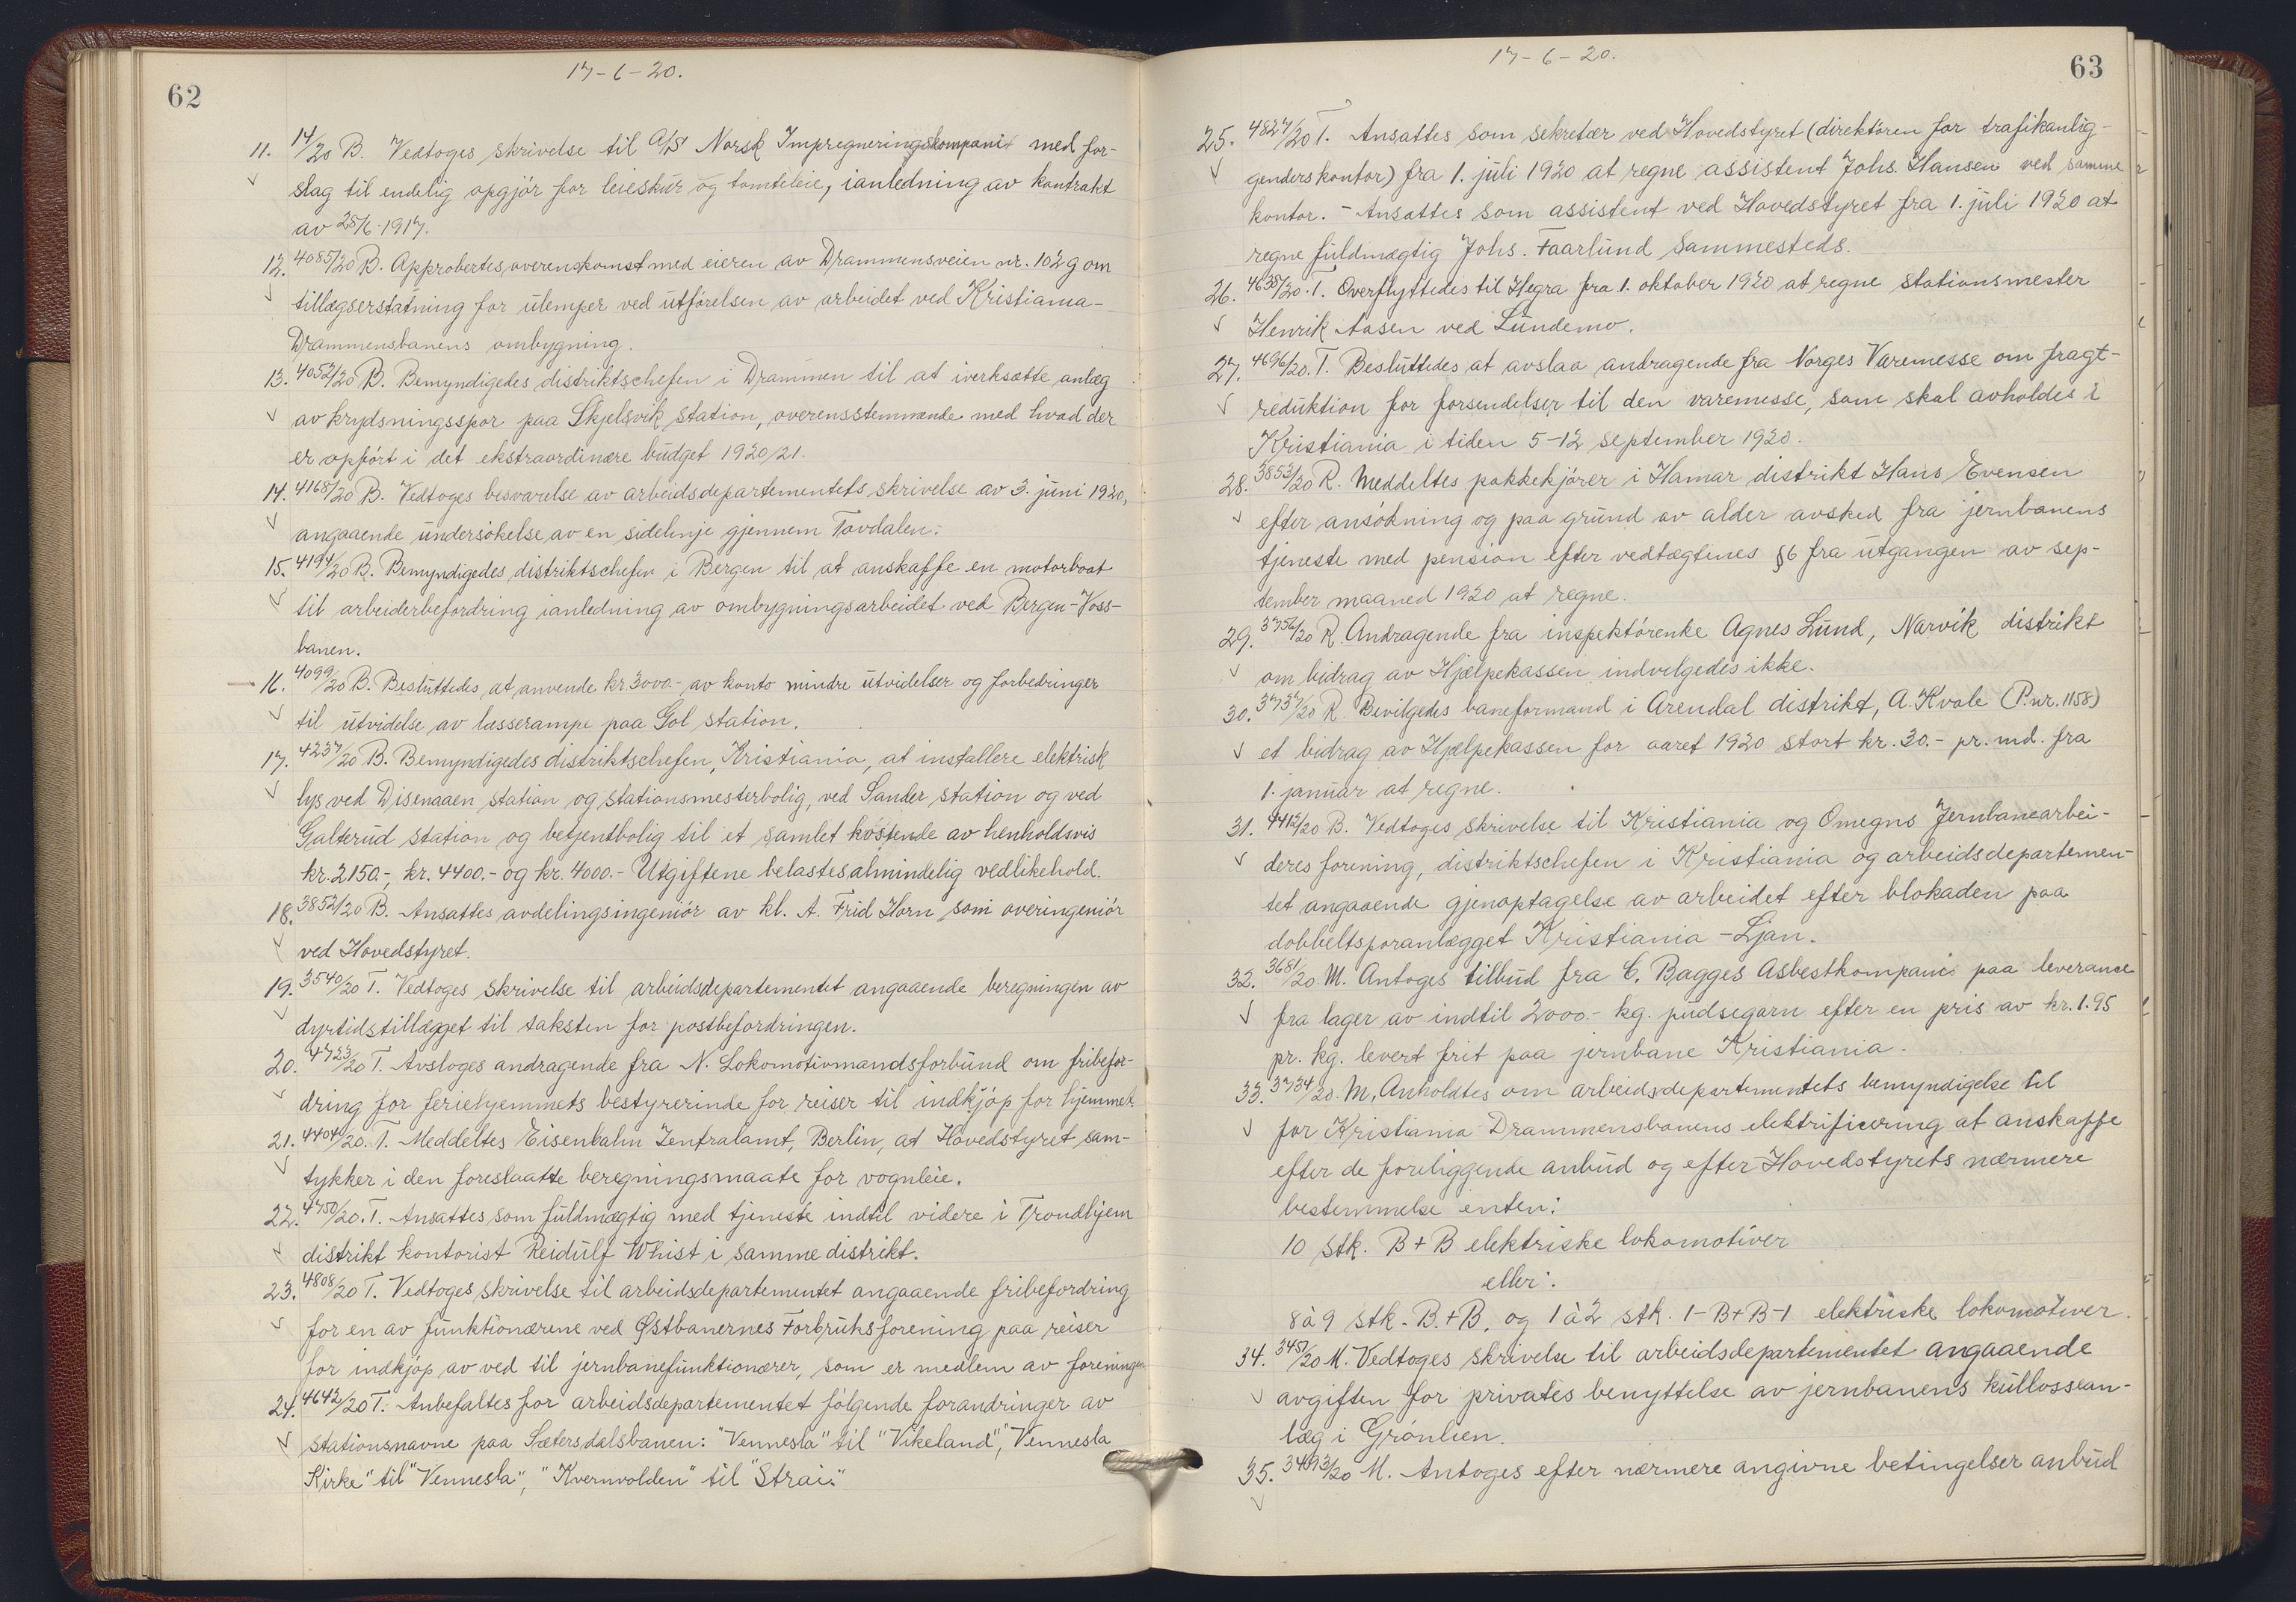 62
17-6-20.
11. 14/20 B. Vedtoges skrivelse til A/S Norsk Impregneringskompani med for-
slag til endelig opgjør for leieskur og tomteleie, ianledning av kontrakt
av 28/6 1917.
12. 4085/20 B. Approbertes overenskomst med eieren av Drammensveien nr. 102 g om
tillægserstatning for ulemper ved utførelsen av arbeidet ved Kristiania-
Drammensbanens ombygning.
13. 4052/20 B. Bemyndigedes distriktschefen i Drammen til at iverksætte anlæg
av krydsningsspor paa Skjelsvik station, overensstemmende med hvad der
er opført i det ekstraordinære budget 1920/21.
14. 4168/20 B. Vedtoges besvarelse av arbeidsdepartementets skrivelse av 3. juni 1920,
angaaende undersøkelse av en sidelinje gjennem Tovdalen.
15. 4194/20 B. Bemyndigedes distriktschefen i Bergen til at anskaffe en motorboat
til arbeiderbefordring ianledning av ombygningsarbeidet ved Bergen-Voss-
banen.
16. 4099/20 B. Besluttedes at anvende kr 3000.- av konto mindre utvidelser og forbedringer
til utvidelse av læsserampe paa Gol station.
17. 4237/20 B. Bemyndigedes distriktschefen, Kristiania, at installere elektrisk
lys ved Disenaaen station og stationsmesterbolig, ved Sander station og ved
Galterud station og betjentbolig til et samlet kostende av henholdsvis
kr. 2150.-, kr. 4400.- og kr. 4000.- Utgiftene belastes almindelig vedlikehold.
18. 3852/20 B. Ansattes avdelingsingeniør av kl. A. Frid Horn som overingeniør
ved Hovedstyret.
19. 3540/20 T. Vedtoges skrivelse til arbeidsdepartementet angaaende beregningen av
dyrtidstillægget til taksten for postbefordringen.
20. 4723/20 T. Avsloges andragende fra N. Lokomotivmandsforbund om fribefor-
dring for feriehjemmets bestyrerinde for reiser til indkjøp for hjemmet.
21. 4404/20. T. Meddeltes Eisenbahn Zentralamt, Berlin, at Hovedstyret sam-
tykker i den foreslaatte beregningsmaate for vognleie.
22. 4750/20. T. Ansattes som fuldmægtig med tjeneste indtil videre i Trondhjem
distrikt kontorist Reidulf Whist i samme distrikt.
23. 4808/20 T. Vedtoges skrivelse til arbeidsdepartementet angaaende fribefordring
for en av funktionærene ved Østbanernes Forbruksforening paa reiser
for indkjøp av ved til jernbanefunktionærer, som er medlem av foreningen
24. 4642/20 T. Anbefaltes for arbeidsdepartementet følgende forandringer av
stationsnavne paa Sætersdalsbanen: "Vennesla" til "Vikeland", "Vennesla
Kirke" til "Vennesla", "Kvernvolden" til "Strai."
63
17-6-20.
25. 4827/20 T. Ansattes som sekretær ved Hovedstyret (direktøren for trafikanlig-
genders kontor) fra 1. juli 1920 at regne assistent Johs. Hansen ved samme
kontor. - Ansattes som assistent ved Hovedstyret fra 1. juli 1920 at
regne fuldmægtig Johs. Faarlund sammesteds.
26. 4638/20. T. Overflyttedes til Hegra fra 1. oktober 1920 at regne stationsmester
Henrik Aasen ved Sundemo.
27. 4696/20. T. Besluttedes at avslaa andragende fra Norges Varemesse om fragt-
reduktion for forsendelser til den varemesse, som skal avholdes i
Kristiania i tiden 5-12 september 1920.
28. 3853/20 R. Meddeltes pakkekjører i Hamar distrikt Hans Evensen
efter ansøkning og paa grund av alder avsked fra jernbanens
tjeneste med pension efter vedtægtenes §6 fra utgangen av sep-
tember maaned 1920 at regne.
29. 3756/20 R. Andragende fra inspektørenke Agnes Lund, Narvik distrikt
om bidrag av Hjælpekassen indvilgedes ikke.
30. 3737/20 R. Bevilgedes baneformand i Arendal distrikt, A. Kvale (P.nr. 1158)
et bidrag av Hjælpekassen for aaret 1920 stort kr. 30.- pr. md. fra
1. januar at regne.
31. 4415/20 B. Vedtoges skrivelse til Kristiania og Omegns Jernbanearbei-
deres forening, distriktschefen i Kristiania og arbeidsdepartemen-
tet angaaende gjenoptagelse av arbeidet efter blokaden paa
dobbeltsporanlægget Kristiania - Ljan.
32. 3681/20 M. Antoges tilbud fra C. Bagges Asbestkompani paa leverance
fra lager av indtil 2000.- kg. pudsegarn efter en pris av kr. 1.95
pr. kg. levert frit paa jernbane Kristiania.
33. 3734/20. M. Anholdtes om arbeidsdepartementets bemyndigelse til
for Kristiania-Drammensbanens elektrificering at anskaffe
efter de foreliggende anbud og efter Hovedstyrets nærmere
bestemmelse enten:
10 stk. B+B elektriske lokomotiver
eller:
8 à 9 stk. B.+B. og 1 à 2 stk. 1-B+B-1 elektriske lokomotiver.
34. 3451/20 M. Vedtoges skrivelse til arbeidsdepartementet angaaende
avgiften for privates benyttelse av jernbanens kullossean-
læg i Grønlien.
35. 3493/20 M. Antoges efter nærmere angivne betingelser anbud